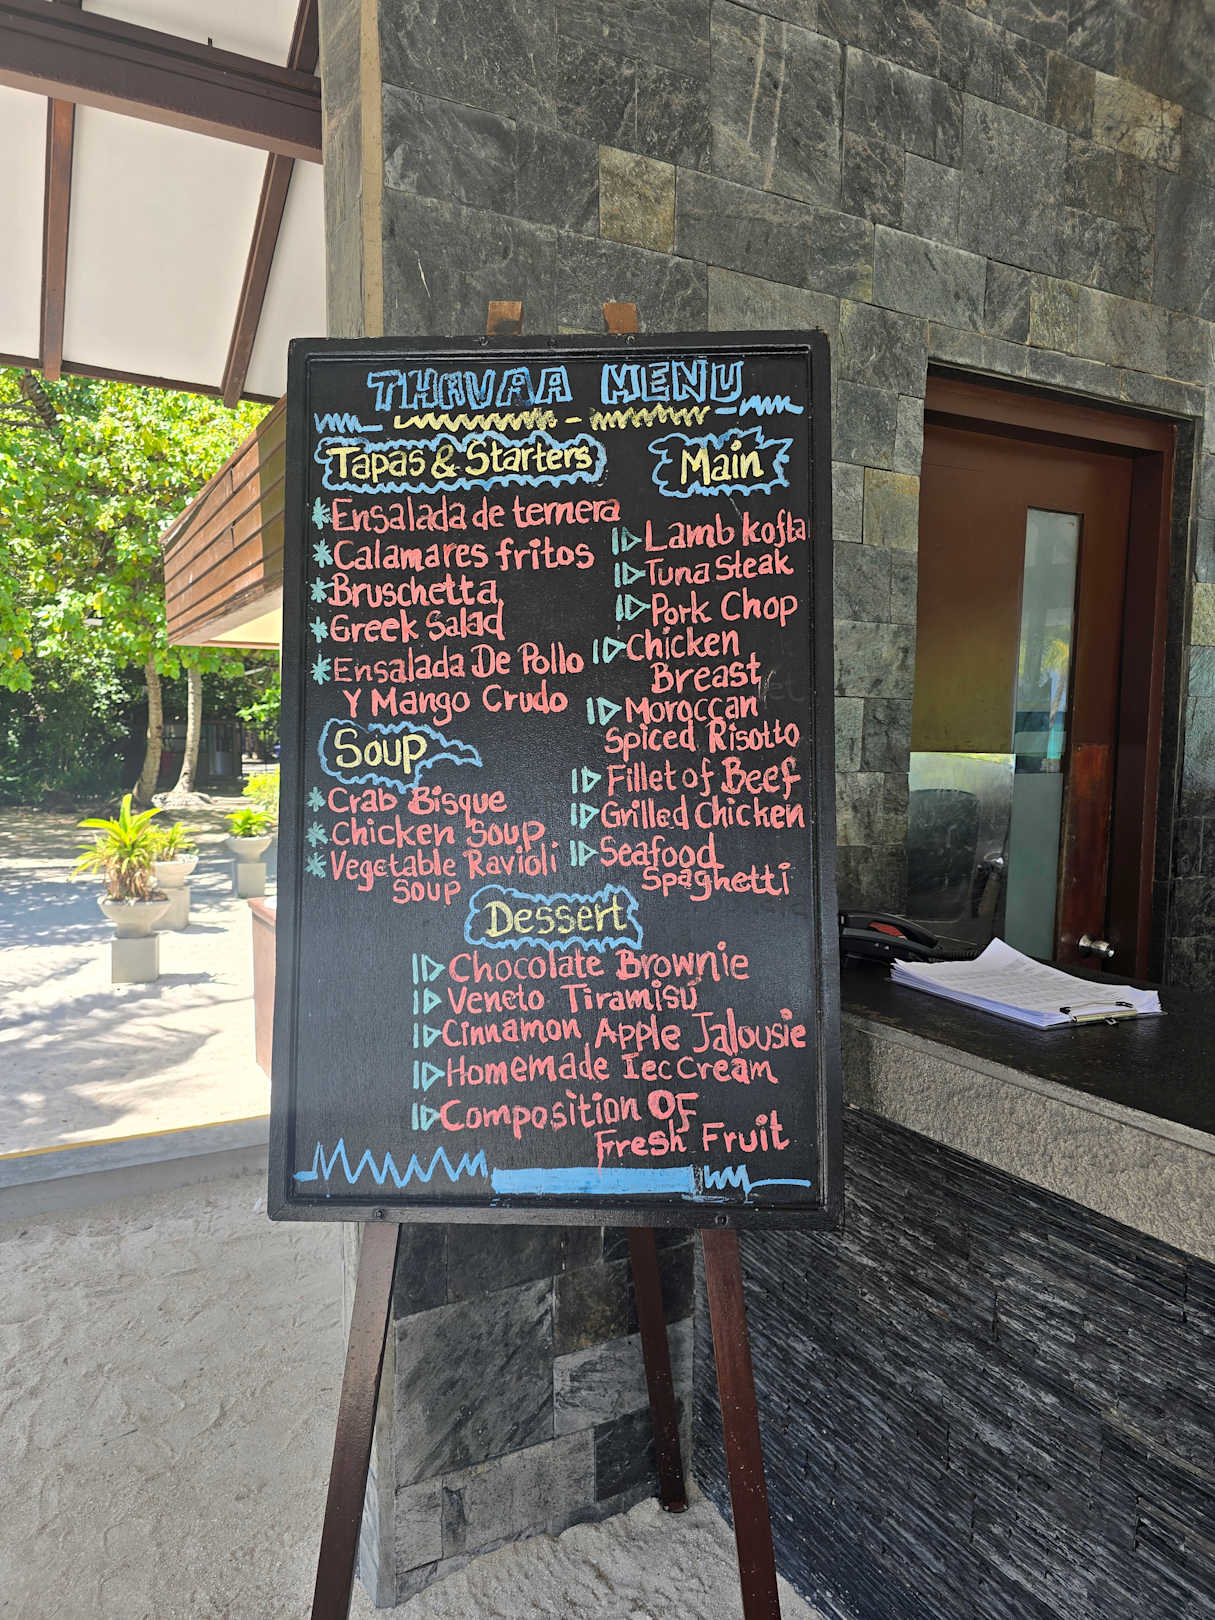 THAVAA MENU
Tapas & Starters
*Ensalada de ternera
*Calamares fritos
*Bruschetta
*Greek Salad
*Ensalada De Pollo
Y Mango Crudo
Soup
*Crab Bisque
*Chicken Soup
*Vegetable Ravioli
Soup
Main
Lamb kofta
Tuna Steak
Pork Chop
Chicken
Breast
Moroccan
Spiced Risotto
Fillet of Beef
Grilled Chicken
Seafood
Spaghetti
Dessert
Chocolate Brownie
Veneto Tiramisu
Cinnamon Apple Jalousie
Homemade Iec Cream
Composition OF
Fresh Fruit